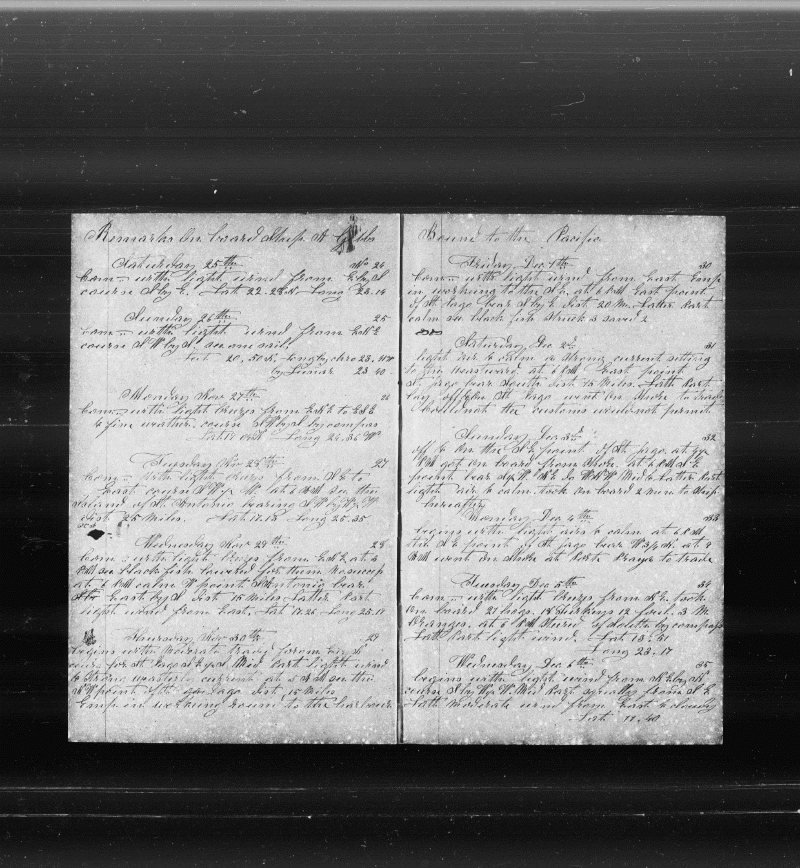 Remarks On board Ship H Gibbs
Saturday 25th No 24
Com— with light wind from E by S
course S by E. Latt 22.28 N Long 23.14
Sunday 26th 25
Com— with light wind from ENE
course S W by S see one sail.
Latt 20,50 N. Long by chro 23.
by Lunar 23 40
Monday Nov 27th 26
Com— with light breezes from ENE to ESE
& fine weather. course SW by S by compas
Long 24.36 W
Tuesday Nov 28th 27
Com— with light breezes from S E to
East course at 6 PM See the
Island of St Antonio bearing S W by W
dist 25 Miles. Latt 17.18 Long 25.35
Wednesday Nov 29th 28
Com— with light breezes from ENE at
PM see black fish lowerd for them no succep
at 6 PM calm W point St Antonio bear
East by dist 15 Miles Latter Part
light wind from East. Latt 17.26 Long 25.19
Thursday Nov 30th 29
begins with Moderate from
cours for St Jago Mid Part light wind
& Strong westerly current at 5 PM see the
N W point of St Jago dist 15 Miles
Emp in working round to the harbour
Bound to the Pacific
Friday Dec 1th 30
Com— with light wind from East Emp
in working to the at 6 PM East point
of St Jago bear S by E dist 20 M. Latter Part
calm see black fish Struck & saved 2
Saturday Dec 2d 31
light air & calm a strong current setting
to the westward at 6 PM East point
St. jago bear South dist 15 Miles. Latth Part
lay off & on St Jago went on shore to trade
could not the customs would not permit
Sunday Dec 3d 32
off & on the S E point of St jago. at
PM got on board from Shore. at 6 PM S E
point bear Mid & Latter Part
light air & calm. took on board 2 men to Ship
hereafter
Monday Dec 4th 33
begins with light airs & calm at 6 PM
the S E point of St Jago bear W 3/4 N. at 9
AM went on shore at Porte Praya to trade
Tuesday Dec 5th 34
Com— with light breezes from N E took
on board 21 hogs, 12 fowl. 3 M
Oranges. at 6 PM Stured by compas
Latt Part light wind. Latt 13.31
Long 23.17
Wednesday Dec 6th 35
begins with light wind from N E by N
course S by W Mid Part squally from S E
Latth Moderate wind from East & cloudy
Latt 11.40